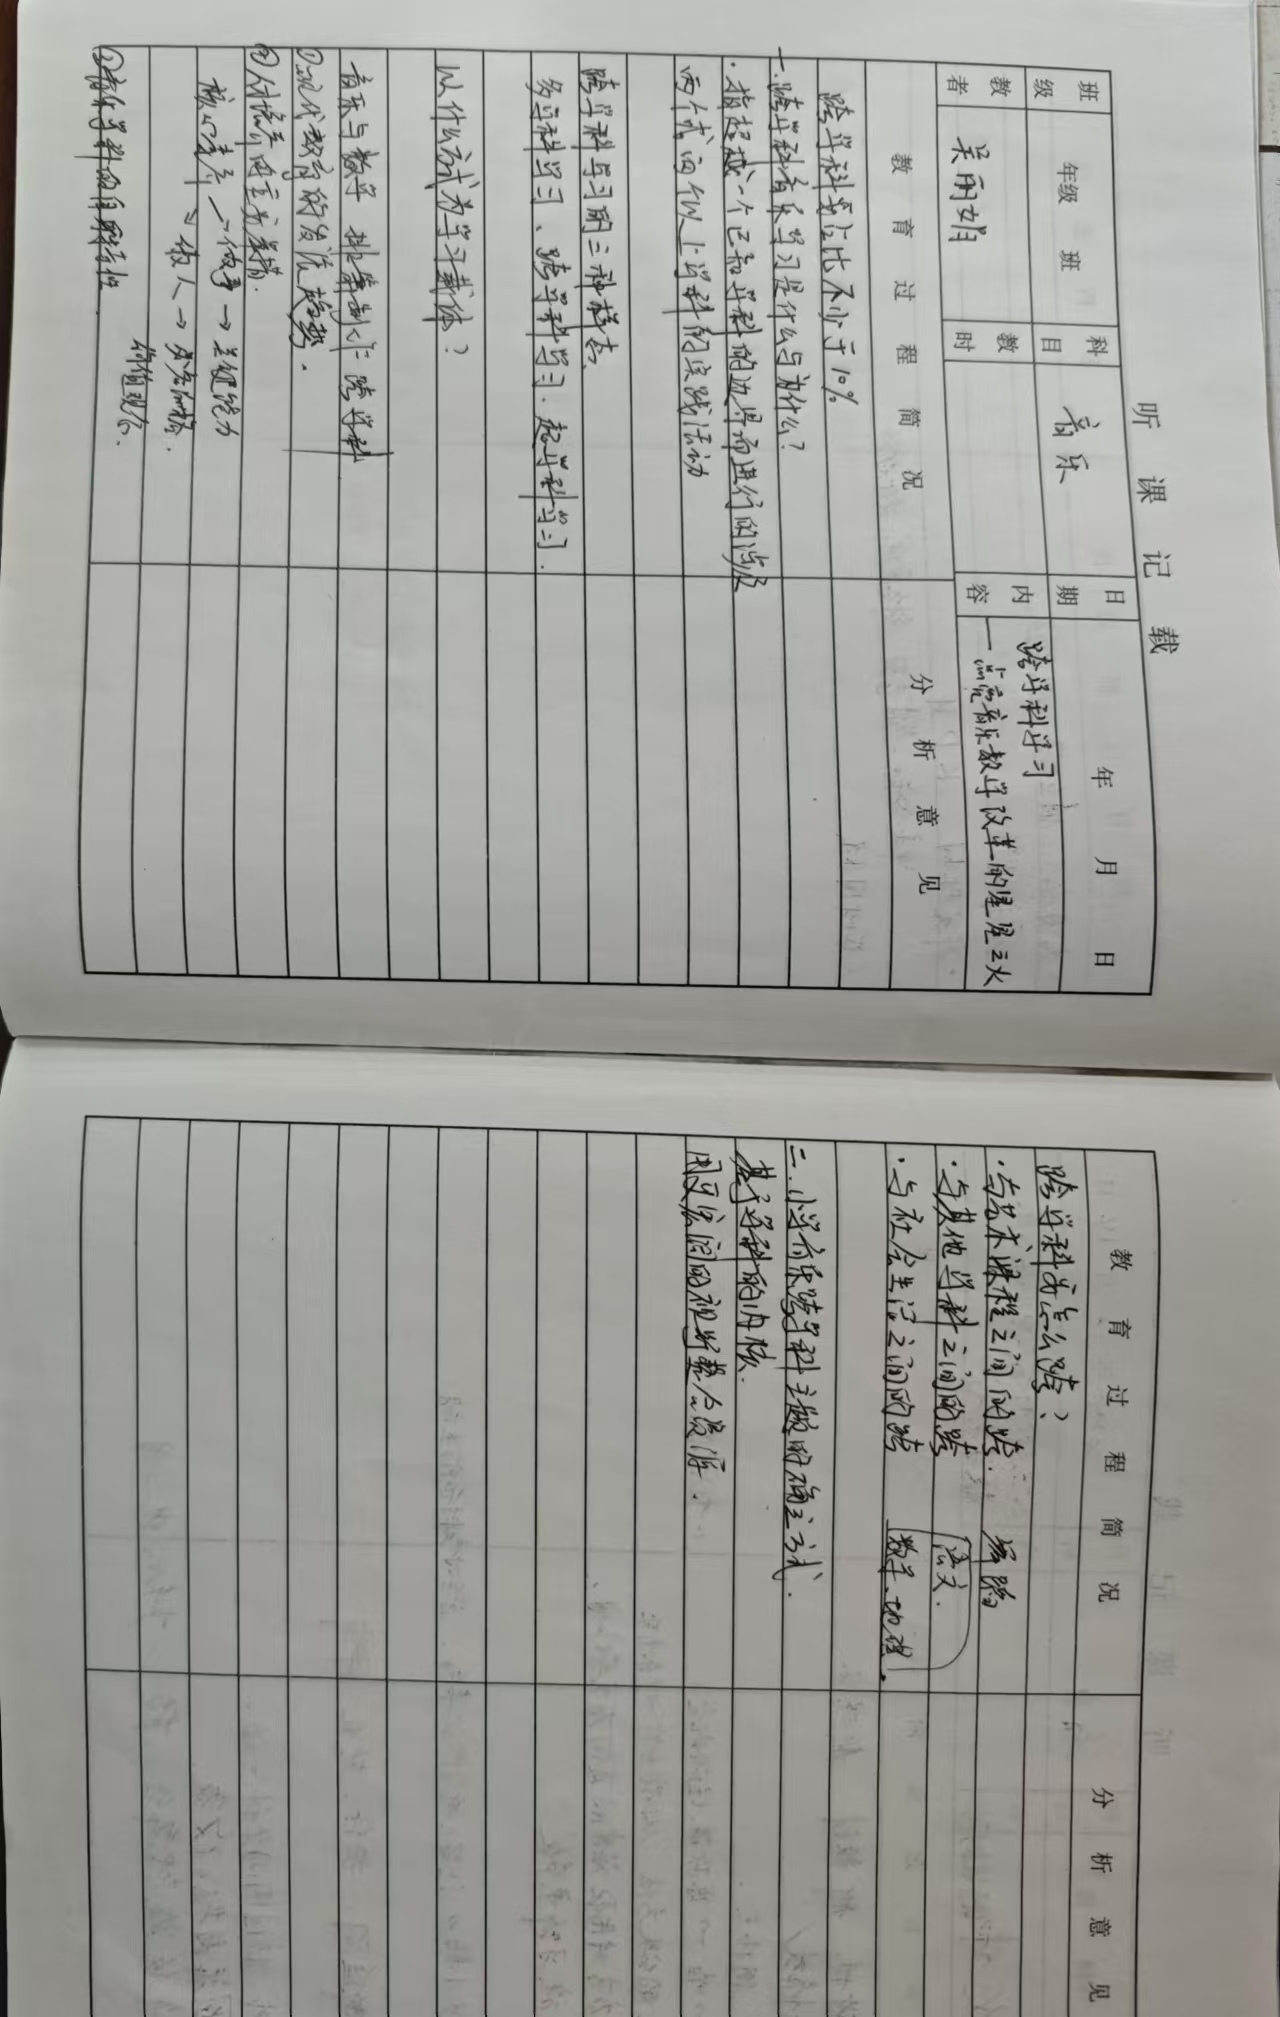 听课记载
班级 年级 班 科目 音乐 日期 年 月 日
执教者 吴丽娟 教时 内容 跨学科学习
一点亮音乐教学改革的星星之火
教育过程简况 分析意见
跨学科要占比不少于10%
一.跨学科音乐学习是什么与为什么?
·指超越一个已知学科的边界而进行的涉及
两个或两个以上学科的实践活动
跨学科学习的三种样态.
多学科学习、跨学科学习.超学科学习.
以什么方式为学习载体?
音乐与数学 排箫制作 跨学科
①现代教育的发展趋势.
②人才培养的重要举措.
核心素养→做事→关键能力
→做人→必备品格.
价值观念.
③音乐学科的自身特性.
教育过程简况 分析意见
跨学科当怎么跨?
·与艺术课程之间的跨. 舞蹈
·与其他学科之间的跨 语文.
·与社会生活之间的跨 数学、地理.
二.小学音乐跨学科主题的确立方式.
基于学科的内核.
用更宏阔的视野整合资源.